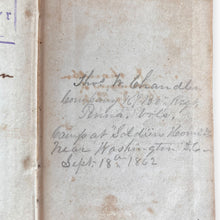 Chandler
Company
Penna. Vols.
Camp at Soldiers Home
Near Washington D.C.
Sept. 18th 1862